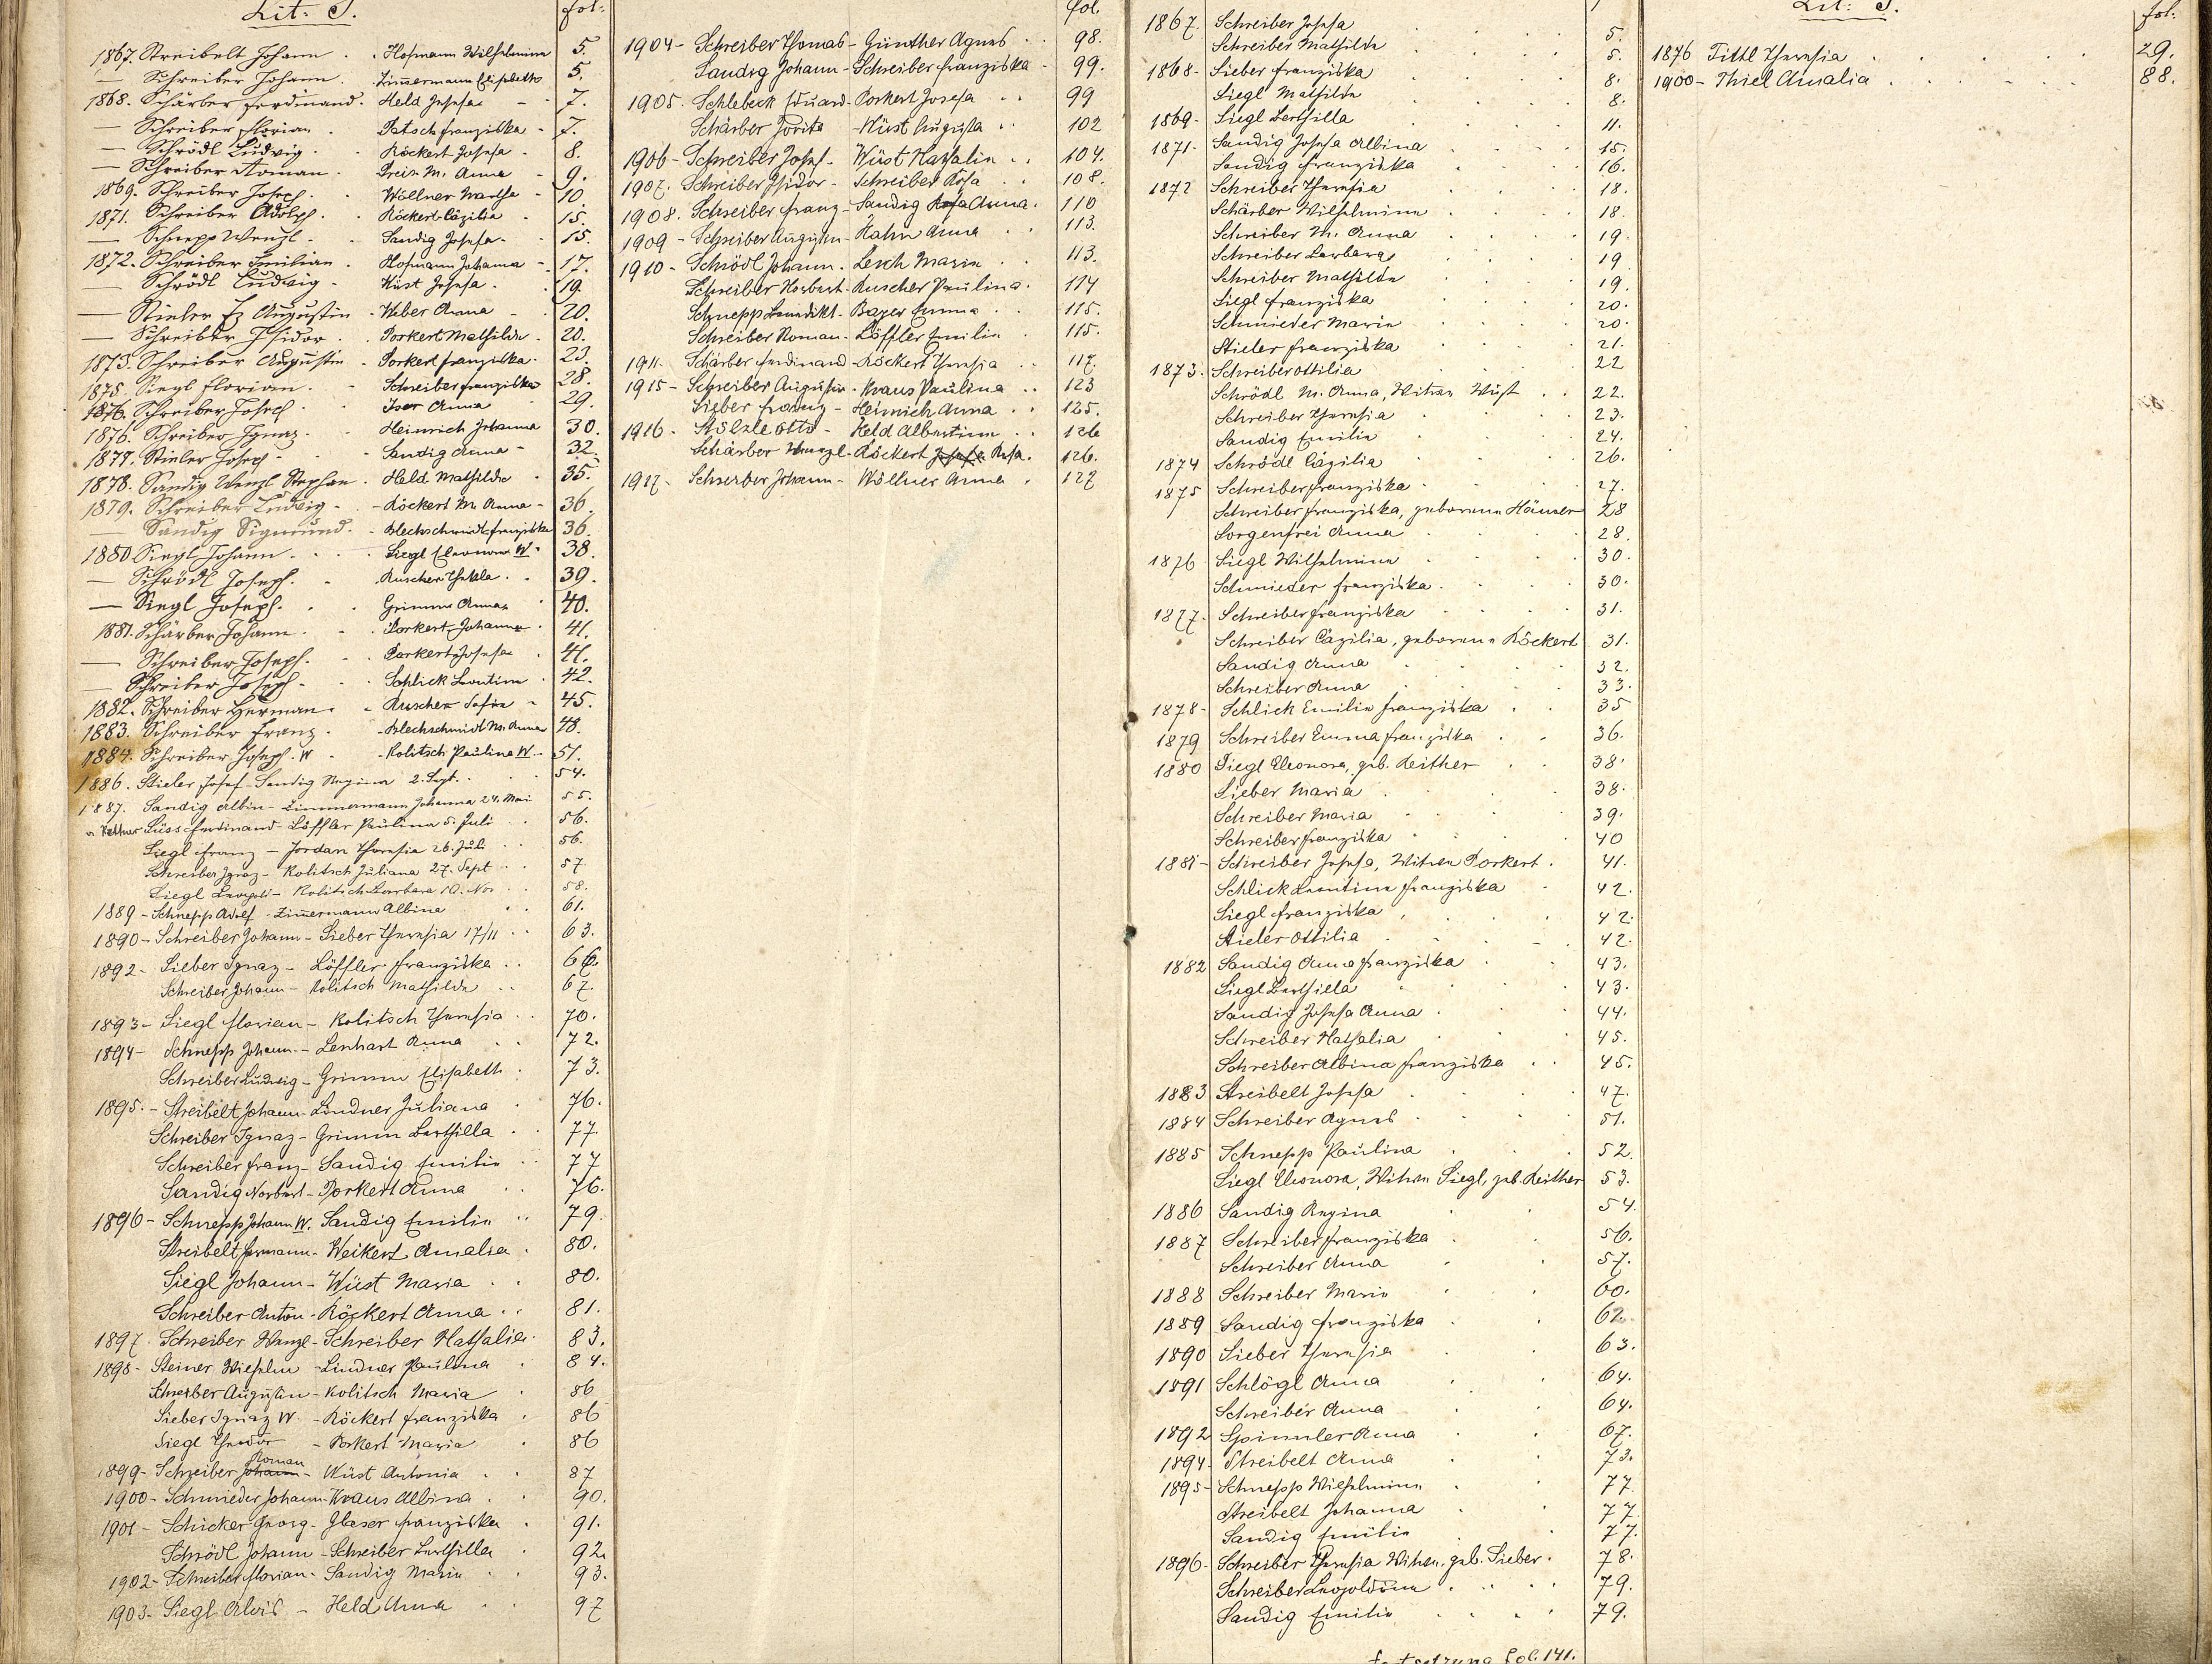 Lit: S.
fol:
1867. Streibelt Johann . . Hofmann Wilhelmina 5.
— Schreiber Johann . Zimmermann Elisabeth 5.
1868. Schärber Ferdinand . Held Josefa - - 7.
— Schreiber Florian . Patsch Franziska - 7.
— Schrödl Ludwig . . Röckert Josefa - 8.
— Schreiber Roman . Prein M. Anna - 9.
1869. Schreiber Joseph . . Wöllner Martha - 10.
1871. Schreiber Adolph . . Röckert Cäzilia - 15.
— Schnepp Wenzl . . Sandig Josefa - . 15.
1872. Schreiber Emilian . Hofmann Johanna - 17.
— Schrödl Ludwig - Wüst Josefa . . 19.
— Stieler Fz Augustin - Weber Anna - 20.
— Schreiber Isidor . . Porkert Mathilde . 20.
1873. Schreiber Augustin - Porkert Franziska . 23.
1875. Siegl Florian . - Schreiber Franziska 28.
1876. Schreiber Josech . . Iser Anna . 29.
1876. Schreiber Ignaz . . Heinrich Johanna 30.
1877. Stieler Josech - . Sandig Anna - 32.
1878. Sandig Wenzl Stephan . Held Mathilde . 35.
1879. Schreiber Ludwig - . - Röckert M. Anna - 36.
— Sandig Sigmund . - Blechschmidt Franziska 36.
1880 Siegl Johann . . . Siegl Eleonora W . 38.
— Schrödl Joseph . - Ruscher Thekla . . 39.
— Siegl Joseph . . . Grimm Anna . 40.
1881. Schärber Johann . - . Porkert Johanna . 41.
— Schreiber Joseph . . Porkert Josefa . 41.
— Schreiber Joseph - . . Schlick Leontina . 42.
1882. Schreiber Herman . - Ruscher Sofia - 45.
1883. Schreiber Franz . - Blechschmidt M. Anna 48.
1884. Schreiber Joseph. W - Kolitsch Paulina W. - 51.
1886. Stieler Josef - Sandig Regina 2. Sept. . . 54.
1887. Sandig Albin - Zimmermann Johanna 24. Mai 55.
Süss Ferdinand - Löffler Paulina 5. Juli . . 56.
Siegl Franz - Jordan Theresia 26. Juli . . 56.
Schreiber Ignaz - Kolitsch Juliana 27. Sept . . 57
Siegl Leopold - Kolitsch Barbara 10. Nov . . 58.
1889 - Schnepp Adolf - Zimmermann Albina . . 61.
1890 - Schreiber Johann - Sieber Theresia 17/11 . . 63.
1892 - Sieber Ignaz - Löffler Franziska . . 66.
Schreiber Johann - Kolitsch Mathilde . . 67.
1893 - Siegl Florian - Kolitsch Theresia . . 70.
1894 - Schnepp Johann - Lenhart Anna . . 72.
Schreiber Ludwig - Grimm Elisabeth . 73.
1895. - Streibelt Johann - Lindner Juliana . 76.
Schreiber Ignaz - Grimm Berthilla . . 77.
Schreiber Franz - Sandig Emilie . . 77
Sandig Norbert - Porkert Anna . . 76.
1896 - Schnepp Johann W. Sandig Emilie . . 79.
Streibelt Hermann - Weikert Amalia . 80.
Siegl Johann - Wüst Maria . . 80.
Schreiber Anton - Röckert Anna . . 81.
1897. Schreiber Wenzl - Schreiber Nathalia . 83.
1898 - Steiner Wilhelm - Lindner Paulina . 84.
Schreiber Augustin - Kolitsch Maria . 86
Sieber Ignaz W. - Röckert Franziska . 86
Siegl Theodor - Porkert Maria . 86
1899 - Schreiber Johann Roman - Wüst Antonia . . 87
1900 - Schmieder Johann - Kraus Albina . . 90.
1901 - Schicker Georg - Glaser Franziska . 91.
Schrödl Johann - Schreiber Berthilla . 92.
1902 - Schreiber Florian - Sandig Maria . . 93.
1903 - Siegl Alois - Held Anna . . 97
fol.
1904 - Schreiber Thomas - Günther Agnes . . 98.
Sandig Johann - Schreiber Franziska - 99.
1905. Schlebeck Eduard - Porkert Josefa . . 99
Schärber Jovita - Wüst Augusta . . 102
1906 - Schreiber Josef - Wüst Nathalie . . 104.
1907. Schreiber Isidor - Schreiber Rosa . . 108.
1908. Schreiber Franz - Sandig Rosa Anna . 110
1909 - Schreiber Augustin - Hahn Anna . . 113.
1910 - Schrödl Johann . Lerch Maria . . 113.
Schreiber Norbert - Ruscher Paulina . 114
Schnepp Benedikt - Bayer Emma . . 115.
Schreiber Roman - Löffler Emilie . 115.
1911 - Schärber Ferdinand - Röckert Theresia . . 117.
1915 - Schreiber Augustin - Kraus Paulina . . 123
Sieber Franz - Heinrich Anna . . 125.
1916 - Stölzle Otto - Held Albertine . . 126
Schärber Wenzl - Röckert Josefa Rosa . 126.
1917 - Schreiber Johann - Wöllner Anna . 127
1867. Schreiber Josefa . . . 5.
Schreiber Mathilde . . . 5.
1868 - Sieber Franziska . . . 8.
Siegl Mathilde . . . 8.
1869 - Siegl Berthilla . . . 11.
1871 - Sandig Josefa Albina . . . 15.
Sandig Franziska . . . 16.
1872 Schreiber Theresia . . . 18.
Schärber Wilhelmine . . . 18.
Schreiber M. Anna . . . 19.
Schreiber Barbara . . . 19
Schreiber Mathilde . . . 19.
Siegl Franziska . . . 20.
Schmieder Maria . . . 20.
Stieler Franziska . . . 21.
1873 - Schreiber Ottilia . . . 22
Schrödl M. Anna, Witwe Wüst . . 22.
Schreiber Theresia . . . 23.
Sandig Emilie . . . 24.
1874 Schrödl Cäzilia . . . 26.
1875 Schreiber Franziska . . . 27.
Schreiber Franziska, geborene Häusler 28
Sorgenfrei Anna . . . 28.
1876 Siegl Wilhelmine . . . 30.
Schmieder Franziska . . . 30.
1877 - Schreiber Franziska . . . 31.
Schreiber Cäzilia, geborene Röckert 31.
Sandig Anna . . . 32.
Schreiber Anna . . . 33.
1878 - Schlick Emilie Franziska . . 35
1879 Schreiber Emma Franziska . . 36.
1880 Siegl Eleonora, geb. Reither . . 38.
Sieber Maria . . . 38.
Schreiber Maria . . . 39.
Schreiber Franziska . . . 40
1881 - Schreiber Josefa, Witwe Porkert . 41.
Schlick Leontine Franziska . 42.
Siegl Franziska . . . 42.
Stieler Ottilia . . . 42.
1882 Sandig Anna Franziska . . 43.
Siegl Berthilla . . . 43.
Sandig Josefa Anna . . . 44.
Schreiber Nathalia . . . 45.
Schreiber Albina Franziska . . 45.
1883 Streibelt Josefa . . . 47.
1884 Schreiber Agnes . . . 51.
1885 Schnepp Paulina . . . 52.
Siegl Eleonora, Witwe Siegl, geb. Reither 53.
1886 Sandig Regina . . 54.
1887 Schreiber Franziska . . 56.
Schreiber Anna . . 57.
1888 Schreiber Marie . . 60.
1889 Sandig Franziska . . 62.
1890 Sieber Theresia . . 63.
1891 Schlögl Anna . . 64.
Schreiber Anna . . 64.
1892 Spinnler Anna . . 67.
1894 - Streibelt Anna . . 73.
1895 - Schnepp Wilhelmine . . 77.
Streibelt Johanna . . 77.
Sandig Emilie . . 77.
1896 - Schreiber Theresia Witwe, geb. Sieber . 78.
Schreiber Leopoldine . . . . 79.
Sandig Emilie . . . . 79.
Fortsetzung fol. 141.
Lit: T.
fol.
1876 Tittl Theresia . . . . 29.
1900 - Thiel Amalia . . . . 88.